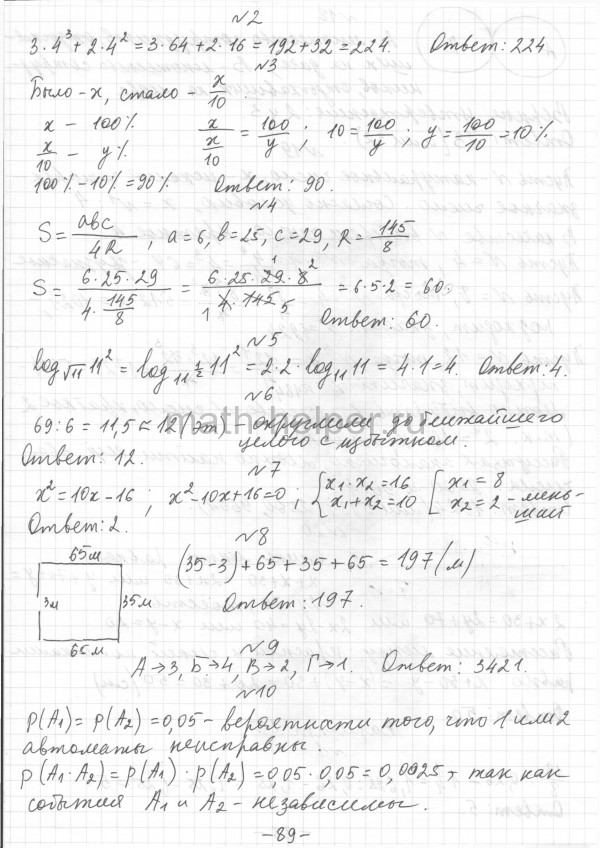 №2
3·4³+2·4²=3·64+2·16=192+32=224. Ответ: 224
№3
Было - x, стало - x/10.
x - 100% x/(x/10) = 100/y; 10=100/y; y=100/10=10%
x/10 - y%
100%-10%=90% Ответ: 90.
№4
S=abc/4R, a=6, b=25, c=29, R=145/8
S= 6·25·29/(4·145/8) = 6·25·29·8/(4·145) = 6·5·2=60.
Ответ: 60.
№5
log√11 11² = log11^(1/2) 11² = 2·2·log11 11 = 4·1=4. Ответ: 4.
№6
69:6=11,5≈12(эт) округлили до ближайшего
целого с избытком.
Ответ: 12.
№7
x²=10x-16; x²-10x+16=0; {x1·x2=16 [x1=8
x1+x2=10 x2=2 - мень-
ший
Ответ: 2.
№8
65м (35-3)+65+35+65=197(м)
3м 35м Ответ: 197.
65м
№9
А→3, Б→4, В→2, Г→1. Ответ: 3421.
№10
p(A1)=p(A2)=0,05 - вероятности того, что 1 или 2
автоматы неисправны.
p(A1·A2)=p(A1)·p(A2)=0,05·0,05=0,0025, так как
события A1 и A2 - независимы.
-89-
math-helper.ru